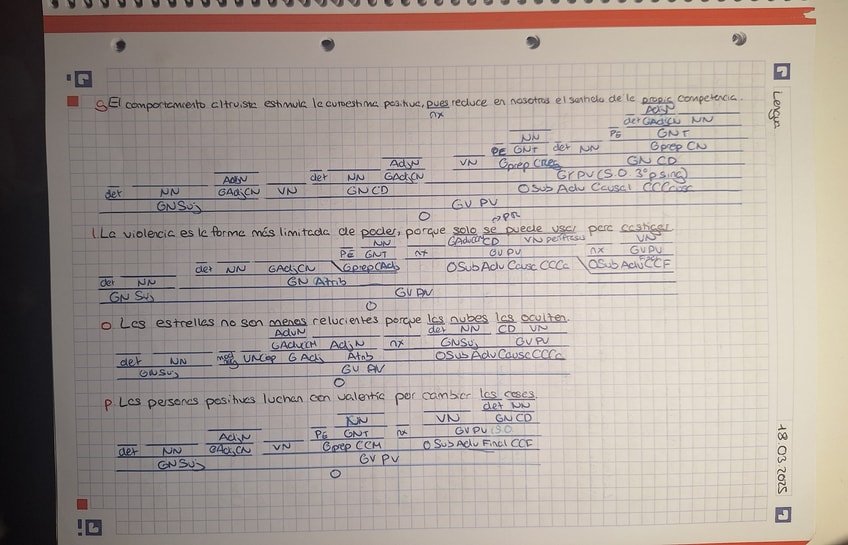 Lengua
18.03.2025
S El comportamiento altruista estimula la autoestima positiva, pues reduce en nosotros el sentido de la propia competencia.
nx AdjN
det GAdjCN NN
NN PE GNT
PE GNT det NN GprepCN
AdjN VN GNCD
AdjN det NN GAdjCN GrPV (S.O. 3ªp sing)
det NN GAdjCN VN GNCD OSub Adv Causal CCCausa
GNSuj GV PV
O
l. La violencia es la forma más limitada de poder, porque solo se puede usar para castigar.
NN CD VN perífrasis VN
PE GNT nx GVPV nx GVPV
det NN GAdjCN GprepCAdj OSub Adv Causa CCCa OSub Adv CCF
det NN GN Atrib
GN Suj GV PN
O
o Las estrellas no son menos relucientes porque las nubes las oculten.
AdvN det NN CD VN
AdjN nx GNSuj GVPV
det NN VNCop GAdj Atrib OSub Adv Causa CCCa
GNSuj GV PN
O
p. Las personas positivas luchan con valentía por cambiar las cosas.
det NN
NN VN GNCD
AdjN PE GNT nx GVPV
det NN GAdjCN VN Gprep CCM O Sub Adv Final CCF
GNSuj GV PV
O